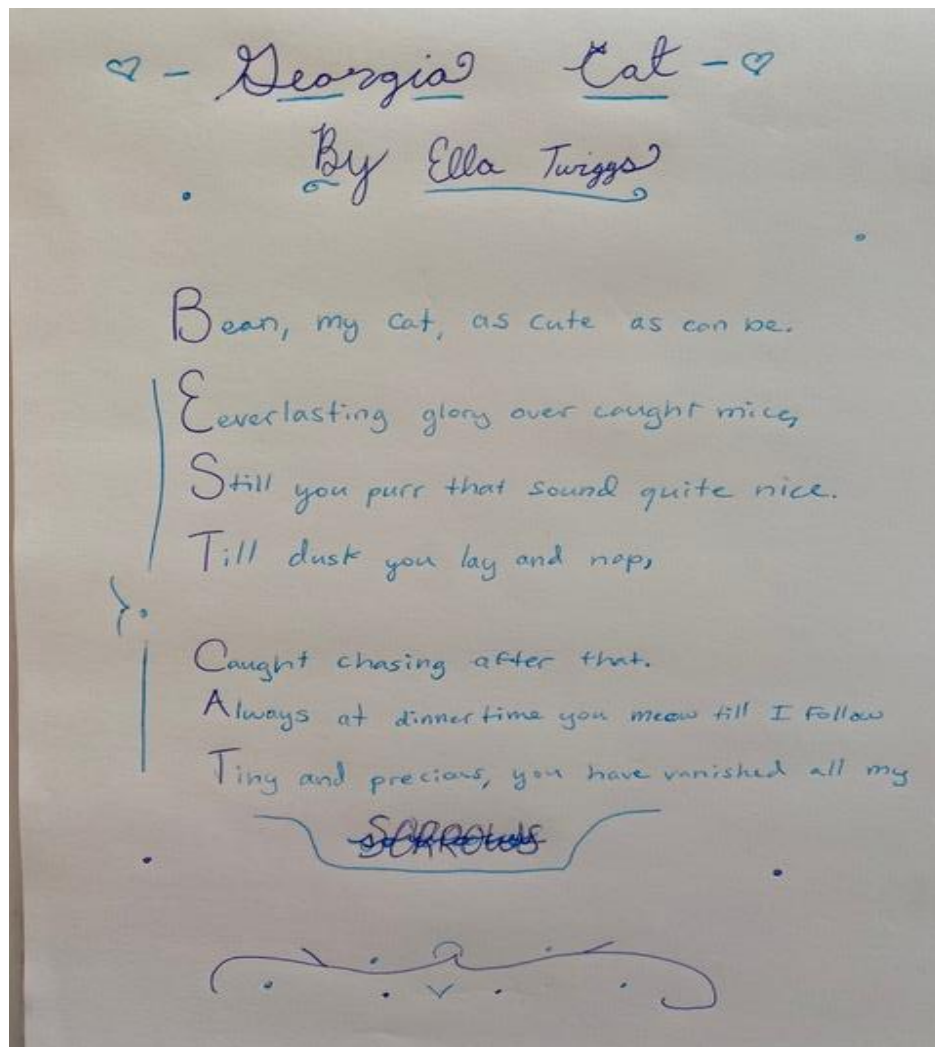 Georgia Cat
By Ella Twiggs
Bean, my cat, as cute as can be.
Eeverlasting glory over caught mice,
Still you purr that sound quite nice.
Till dusk you lay and nap,
Caught chasing after that.
Always at dinnertime you meow till I follow
Tiny and precious, you have vanished all my
SORROWS